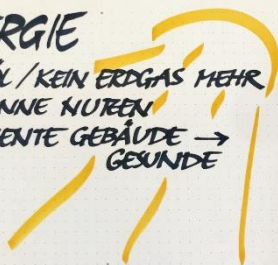 RGIE
L / KEIN ERDGAS MEHR
NNE NUTZEN
ENTE GEBÄUDE →
GESUNDE